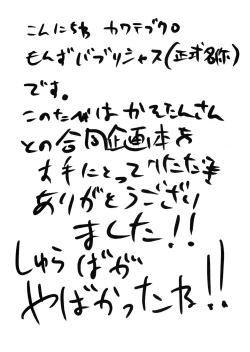 こんにちわ カワテブクロ
もんずバブリシャス(正式名称)
です。
このたびは かえたんさん
との合同企画本を
お手にとっていただき
ありがとうござい
ました!!
しゅらばが
やばかったね!!